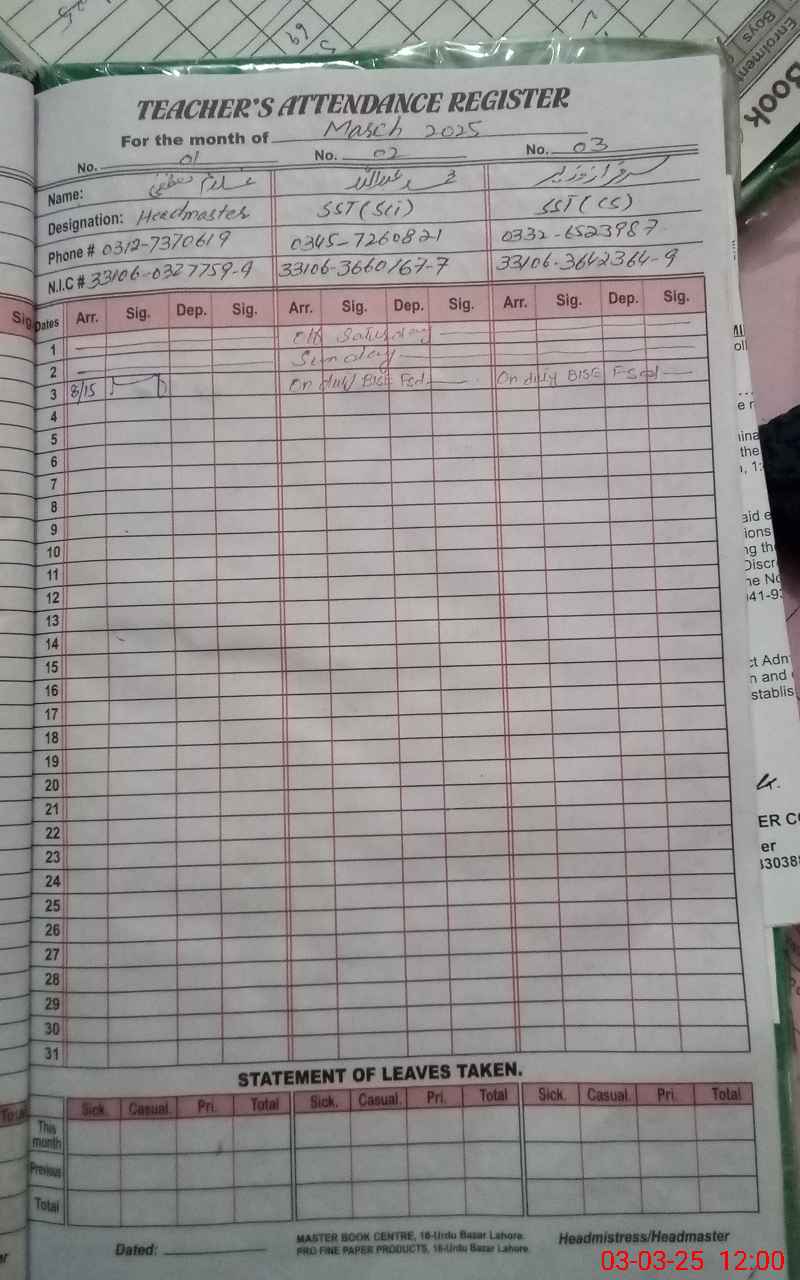 TEACHER'S ATTENDANCE REGISTER
For the month of March 2025
No. 01 No. 02 No. 03
Name: غلام مصطفیٰ محمد عبداللہ سرفراز وزیر
Designation: Headmaster SST (Sci) SST (CS)
Phone # 0312-7370619 0345-7260821 0332-6523987
N.I.C # 33106-0327759-9 33106-3660167-7 33106-3642364-9
Dates Arr. Sig. Dep. Sig. Arr. Sig. Dep. Sig. Arr. Sig. Dep. Sig.
1 Off Saturday
2 Sunday
3 8/15 On duty BISE Fsd On duty BISE Fsd
4
5
6
7
8
9
10
11
12
13
14
15
16
17
18
19
20
21
22
23
24
25
26
27
28
29
30
31
STATEMENT OF LEAVES TAKEN.
Sick. Casual. Pri. Total Sick. Casual. Pri. Total Sick. Casual. Pri. Total
This month
Previous
Total
Dated: MASTER BOOK CENTRE, 16-Urdu Bazar Lahore. Headmistress/Headmaster
PRO FINE PAPER PRODUCTS, 16-Urdu Bazar Lahore.
03-03-25 12:00
Enrolment
Boys
Book